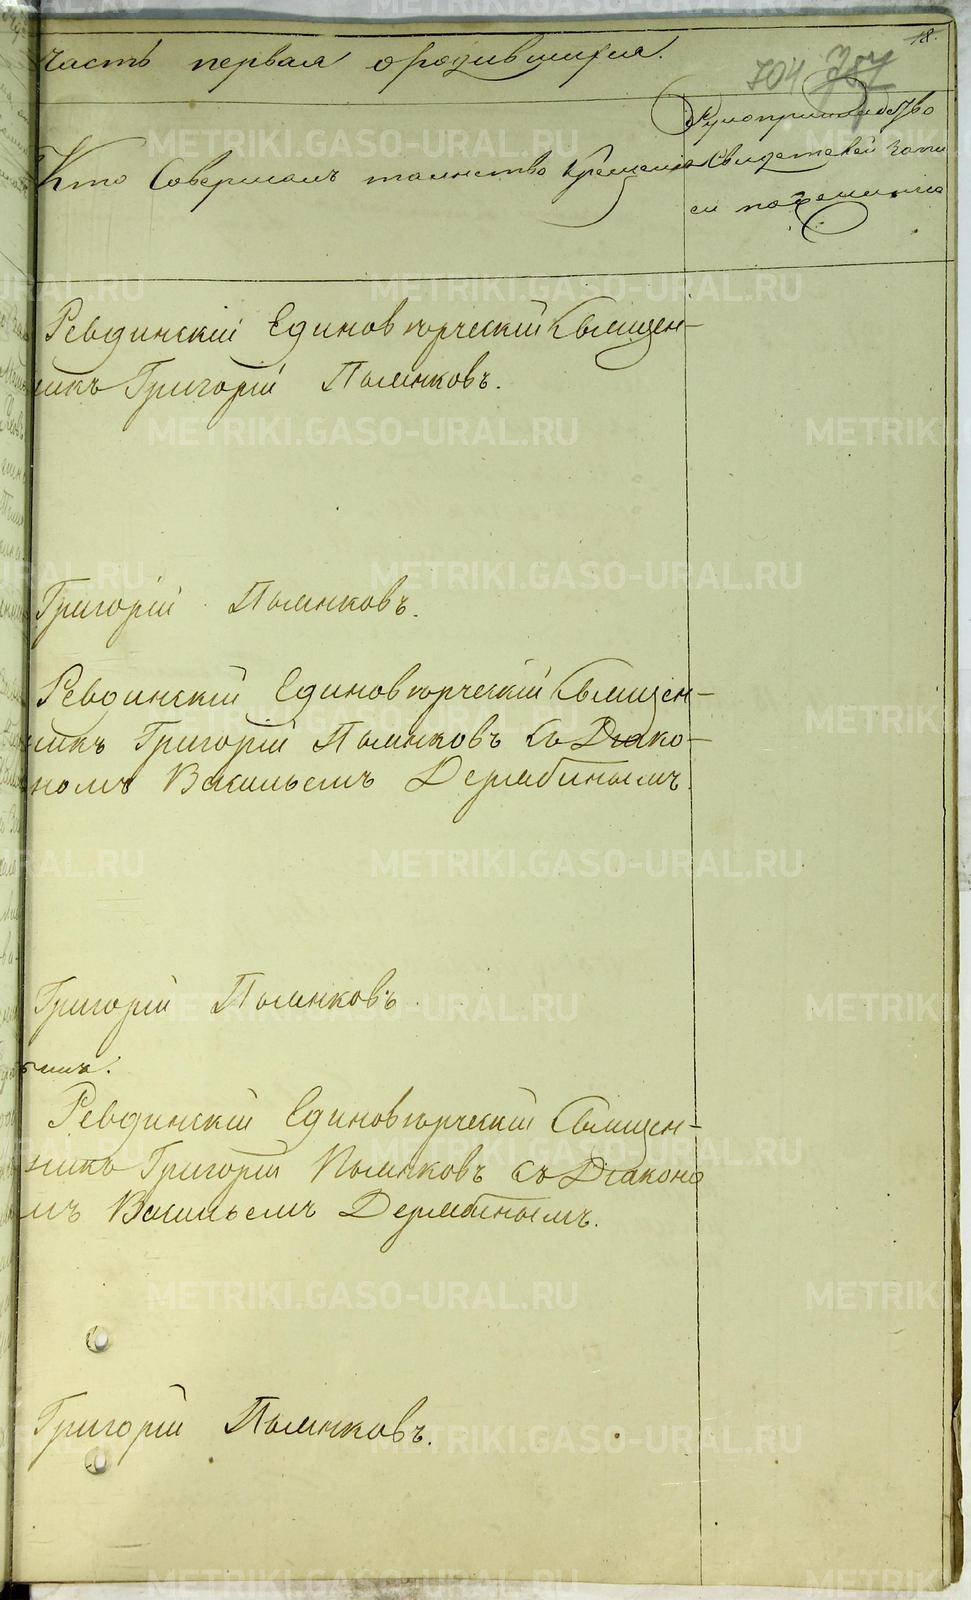 18.
часть первая о родившихся.
704 757
Кто совершалъ таинство крещенія
Рукоприкладство
свидетелей запи
си по желанію
Ревдинскій Единоверческій Священ-
никъ Григорій Пьянковъ.
Григорій Пьянковъ.
Ревдинскій Единоверческій Священ-
никъ Григорій Пьянковъ съ Діако-
номъ Васильемъ Дерябинымъ.
Григорій Пьянковъ
Ревдинскій Единоверческій Священ-
никъ Григорій Пьянковъ съ Діаконо
мъ Васильемъ Дерябинымъ.
Григорій Пьянковъ.
METRIKI.GASO-URAL.RU